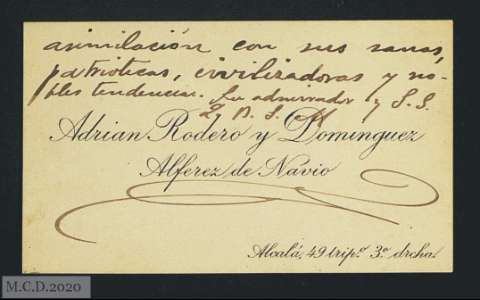 asimilación con sus sanas,
patrióticas, civilizadoras y no-
bles tendencias. Su admirador y S. S.
Q. B. S. M.
Adrian Rodero y Dominguez
Alferez de Navio
Alcalá, 49 trip.º 3º drcha.
M.C.D.2020